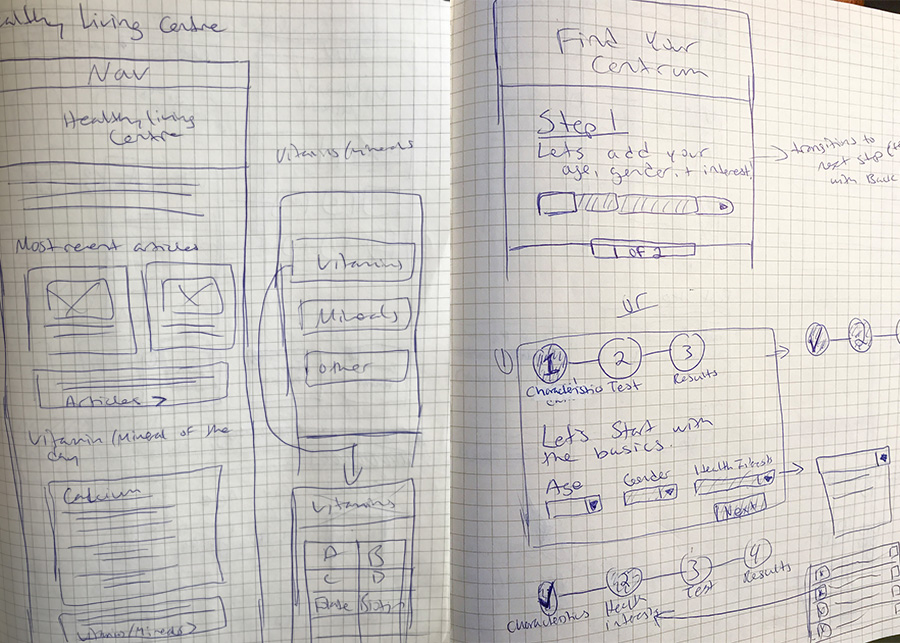 althy Living Centre
Nav
Healthy living
Centre
Most recent articles
Articles >
Vitamin/Mineral of the
day
Calcium
Vitamins/Minerals >
Vitamins/Minerals
Vitamins
Minerals
other
Vitamins
A B
C D
Find Your
Centrum
Step 1
Lets add your
age, gender, + interest!
transitions to
next step
with Back
1 OF 2
or
1
1 2 3
Characteristics Test Results
Let's Start with
the basics.
Age Gender Health Interests
Next
2
2 3 4
Characteristics Health Test Results
interests